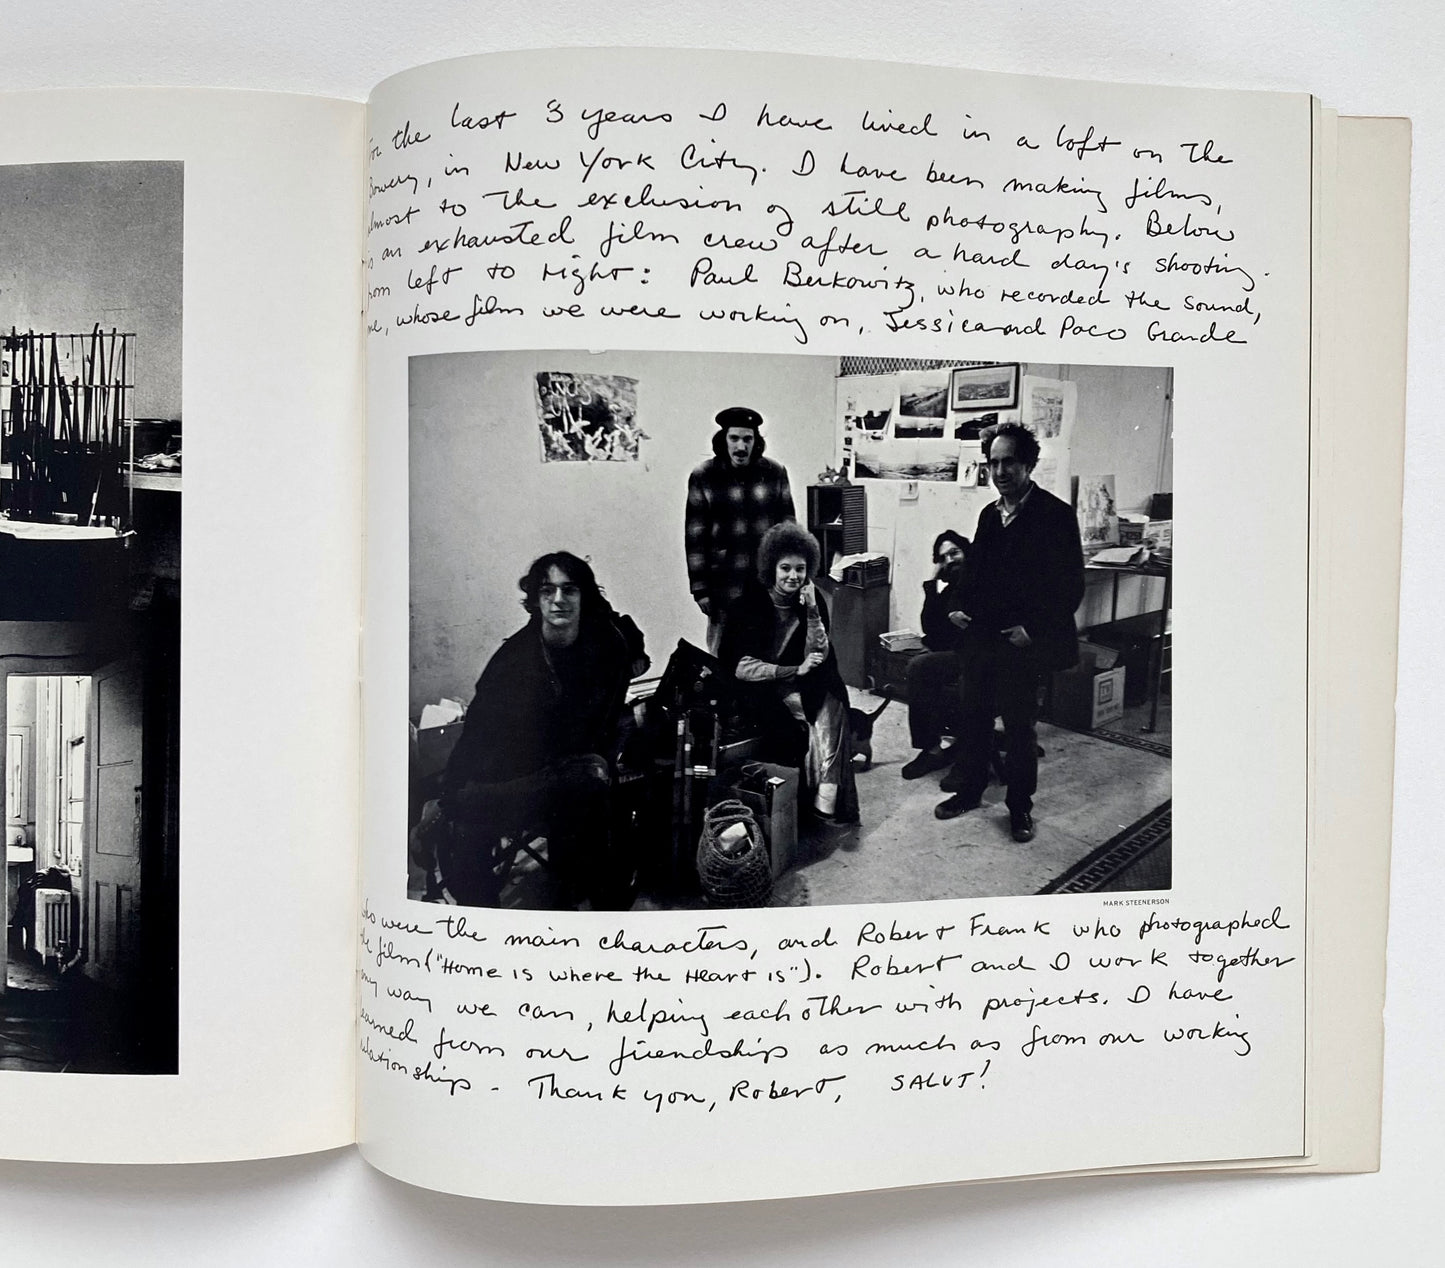 For the last 3 years I have lived in a loft on the
Bowery, in New York City. I have been making films,
almost to the exclusion of still photography. Below
is an exhausted film crew after a hard day's shooting.
from left to right: Paul Berkowitz, who recorded the sound,
me, whose film we were working on, Jessica and Paco Grande
MARK STEENERSON
who were the main characters, and Robert Frank who photographed
the film ("Home is where the Heart is"). Robert and I work together
any way we can, helping each other with projects. I have
learned from our friendship as much as from our working
relationship - Thank you, Robert, SALUT!